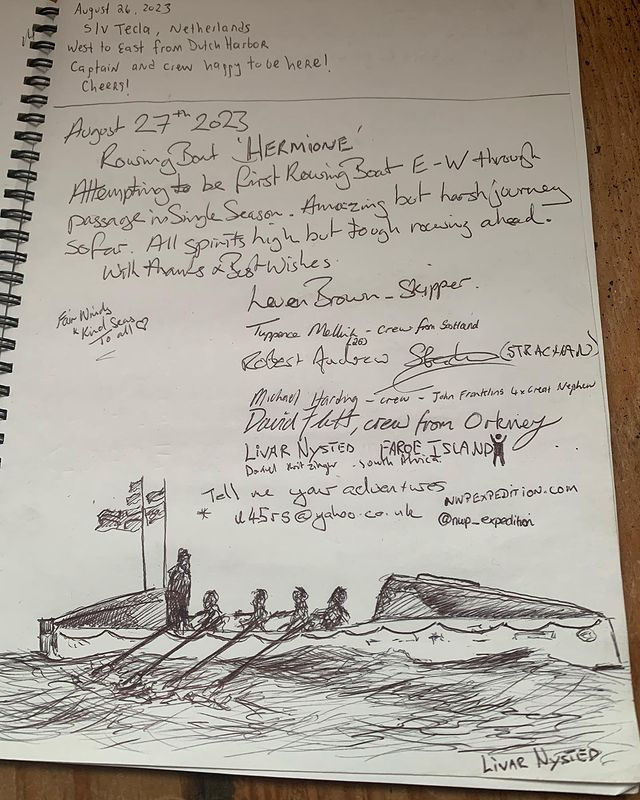 August 26, 2023
S/V Tecla, Netherlands
West to East from Dutch Harbor
Captain and crew happy to be here!
Cheers!
August 27th 2023
Rowing Boat 'HERMIONE'
Attempting to be first Rowing Boat E-W through
passage in Single Season. Amazing but harsh journey
so far. All spirits high but tough rowing ahead.
With thanks & Best Wishes.
Leven Brown - Skipper.
Fair Winds
& Kind Seas
To all ♡
Tuppence - crew from Scotland
(26)
Robert Andrew (STRACHAN)
Michael Harding - crew - John Franklins 4x Great Nephew
David Flett, crew from Orkney
LIVAR NYSTED FAROE ISLAND
Daniel Kritzinger . South Africa
Tell me your adventures
NWPEXPEDITION.COM
* @yahoo.co.uk
@nwp_expedition
LIVAR NYSTED